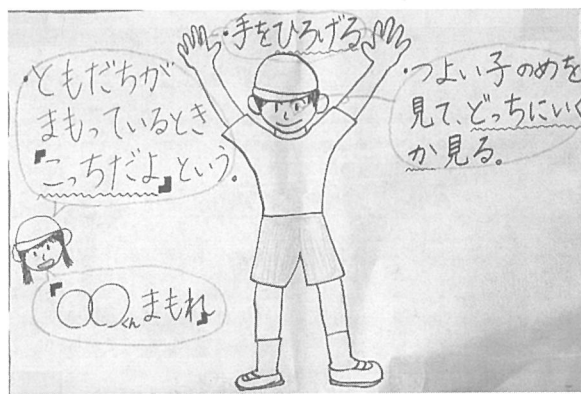 ・手をひろげる
・ともだちが
まもっているとき
『こっちだよ』という。
・つよい子のめを
見て、どっちにいく
か見る。
『○○くんまもれ』